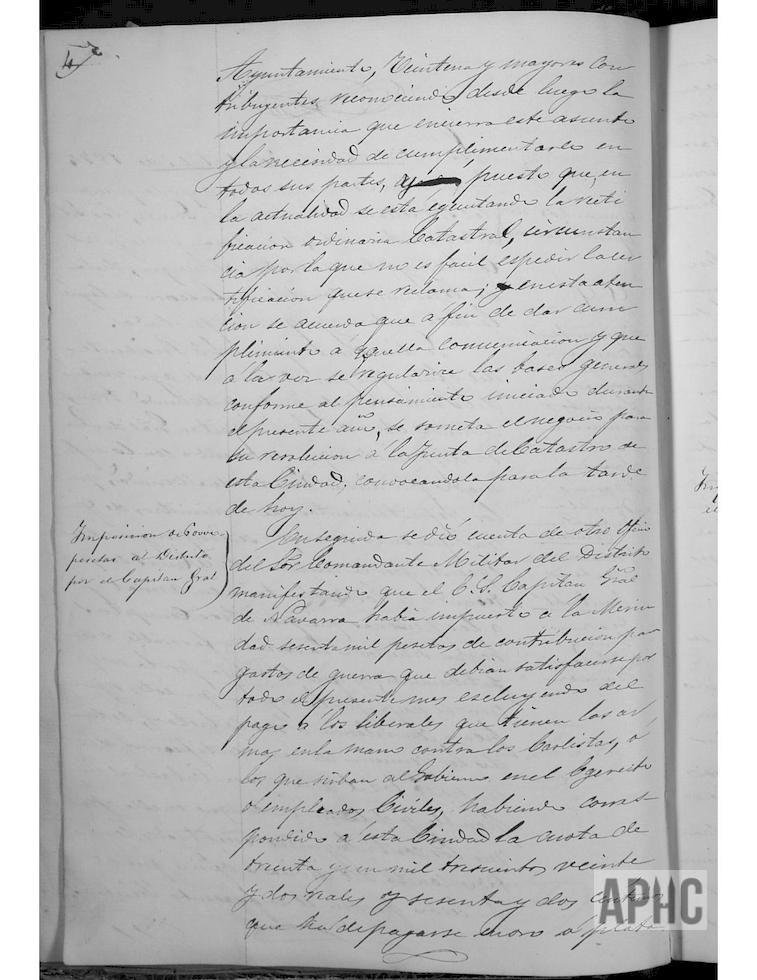 4
Ayuntamiento, Veintena y mayores con
tribuyentes reconociendo desde luego la
importancia que encierra este asunto
y la necesidad de cumplimentarlo en
todas sus partes, puesto que, en
la actualidad se esta ejecutando la reti
ficacion ordinaria Catastral, circunstan
cia por la que no es facil espedir la cer
tificacion que se reclama; y en esta aten
cion se acuerda que a fin de dar cum
plimiento a aquella comunicacion y que
á la vez se regularice las bases generales
conforme al pensamiento iniciado durante
el presente año, se someta el negocio para
su resolucion á la Junta de Catastro de
esta Ciudad, convocandola para la tarde
de hoy.
Imposicion de 60000
pesetas al Distrito
por el Capitan Gral
En seguida se dió cuenta de otro Oficio
del Sor Comandante Militar del Distrito
manifestando que el E. S. Capitan Gral
de Navarra habia impuesto a la Merin
dad sesenta mil pesetas de contribucion para
gastos de guerra que debian satisfacerse por
todo el presente mes escluyendo del
pago á los liberales que tienen las ar
mas en la mano contra los Carlistas, o
los que sirban al Gobierno en el Egercito
o empleados Civiles, habiendo corres-
pondido á esta Ciudad la cuota de
treinta y un mil trescientos veinte
y dos reales y sesenta y dos centimos
que ha de pagarse en oro o plata
APHC